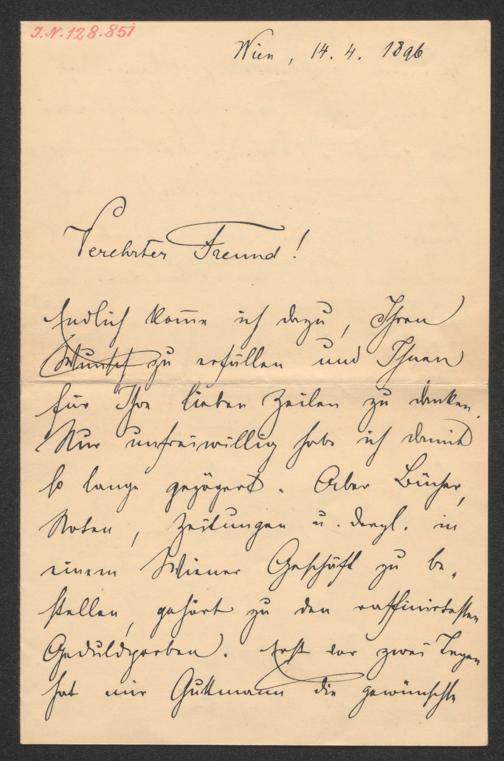 J.N. 128.851
Wien, 14. 4. 1896
Verehrter Freund!
Endlich komme ich dazu, Ihren
Wunsch zu erfüllen und Ihnen
für Ihre lieben Zeilen zu danken.
Nur unfreiwillig habe ich damit
so lange gezögert. Aber Bücher,
Noten, Zeitungen u. dergl. in
einem Wiener Geschäft zu be-
stellen, gehört zu den raffinirtesten
Geduldproben. Erst vor zwei Tagen
hat mir Guttmann die gewünschte